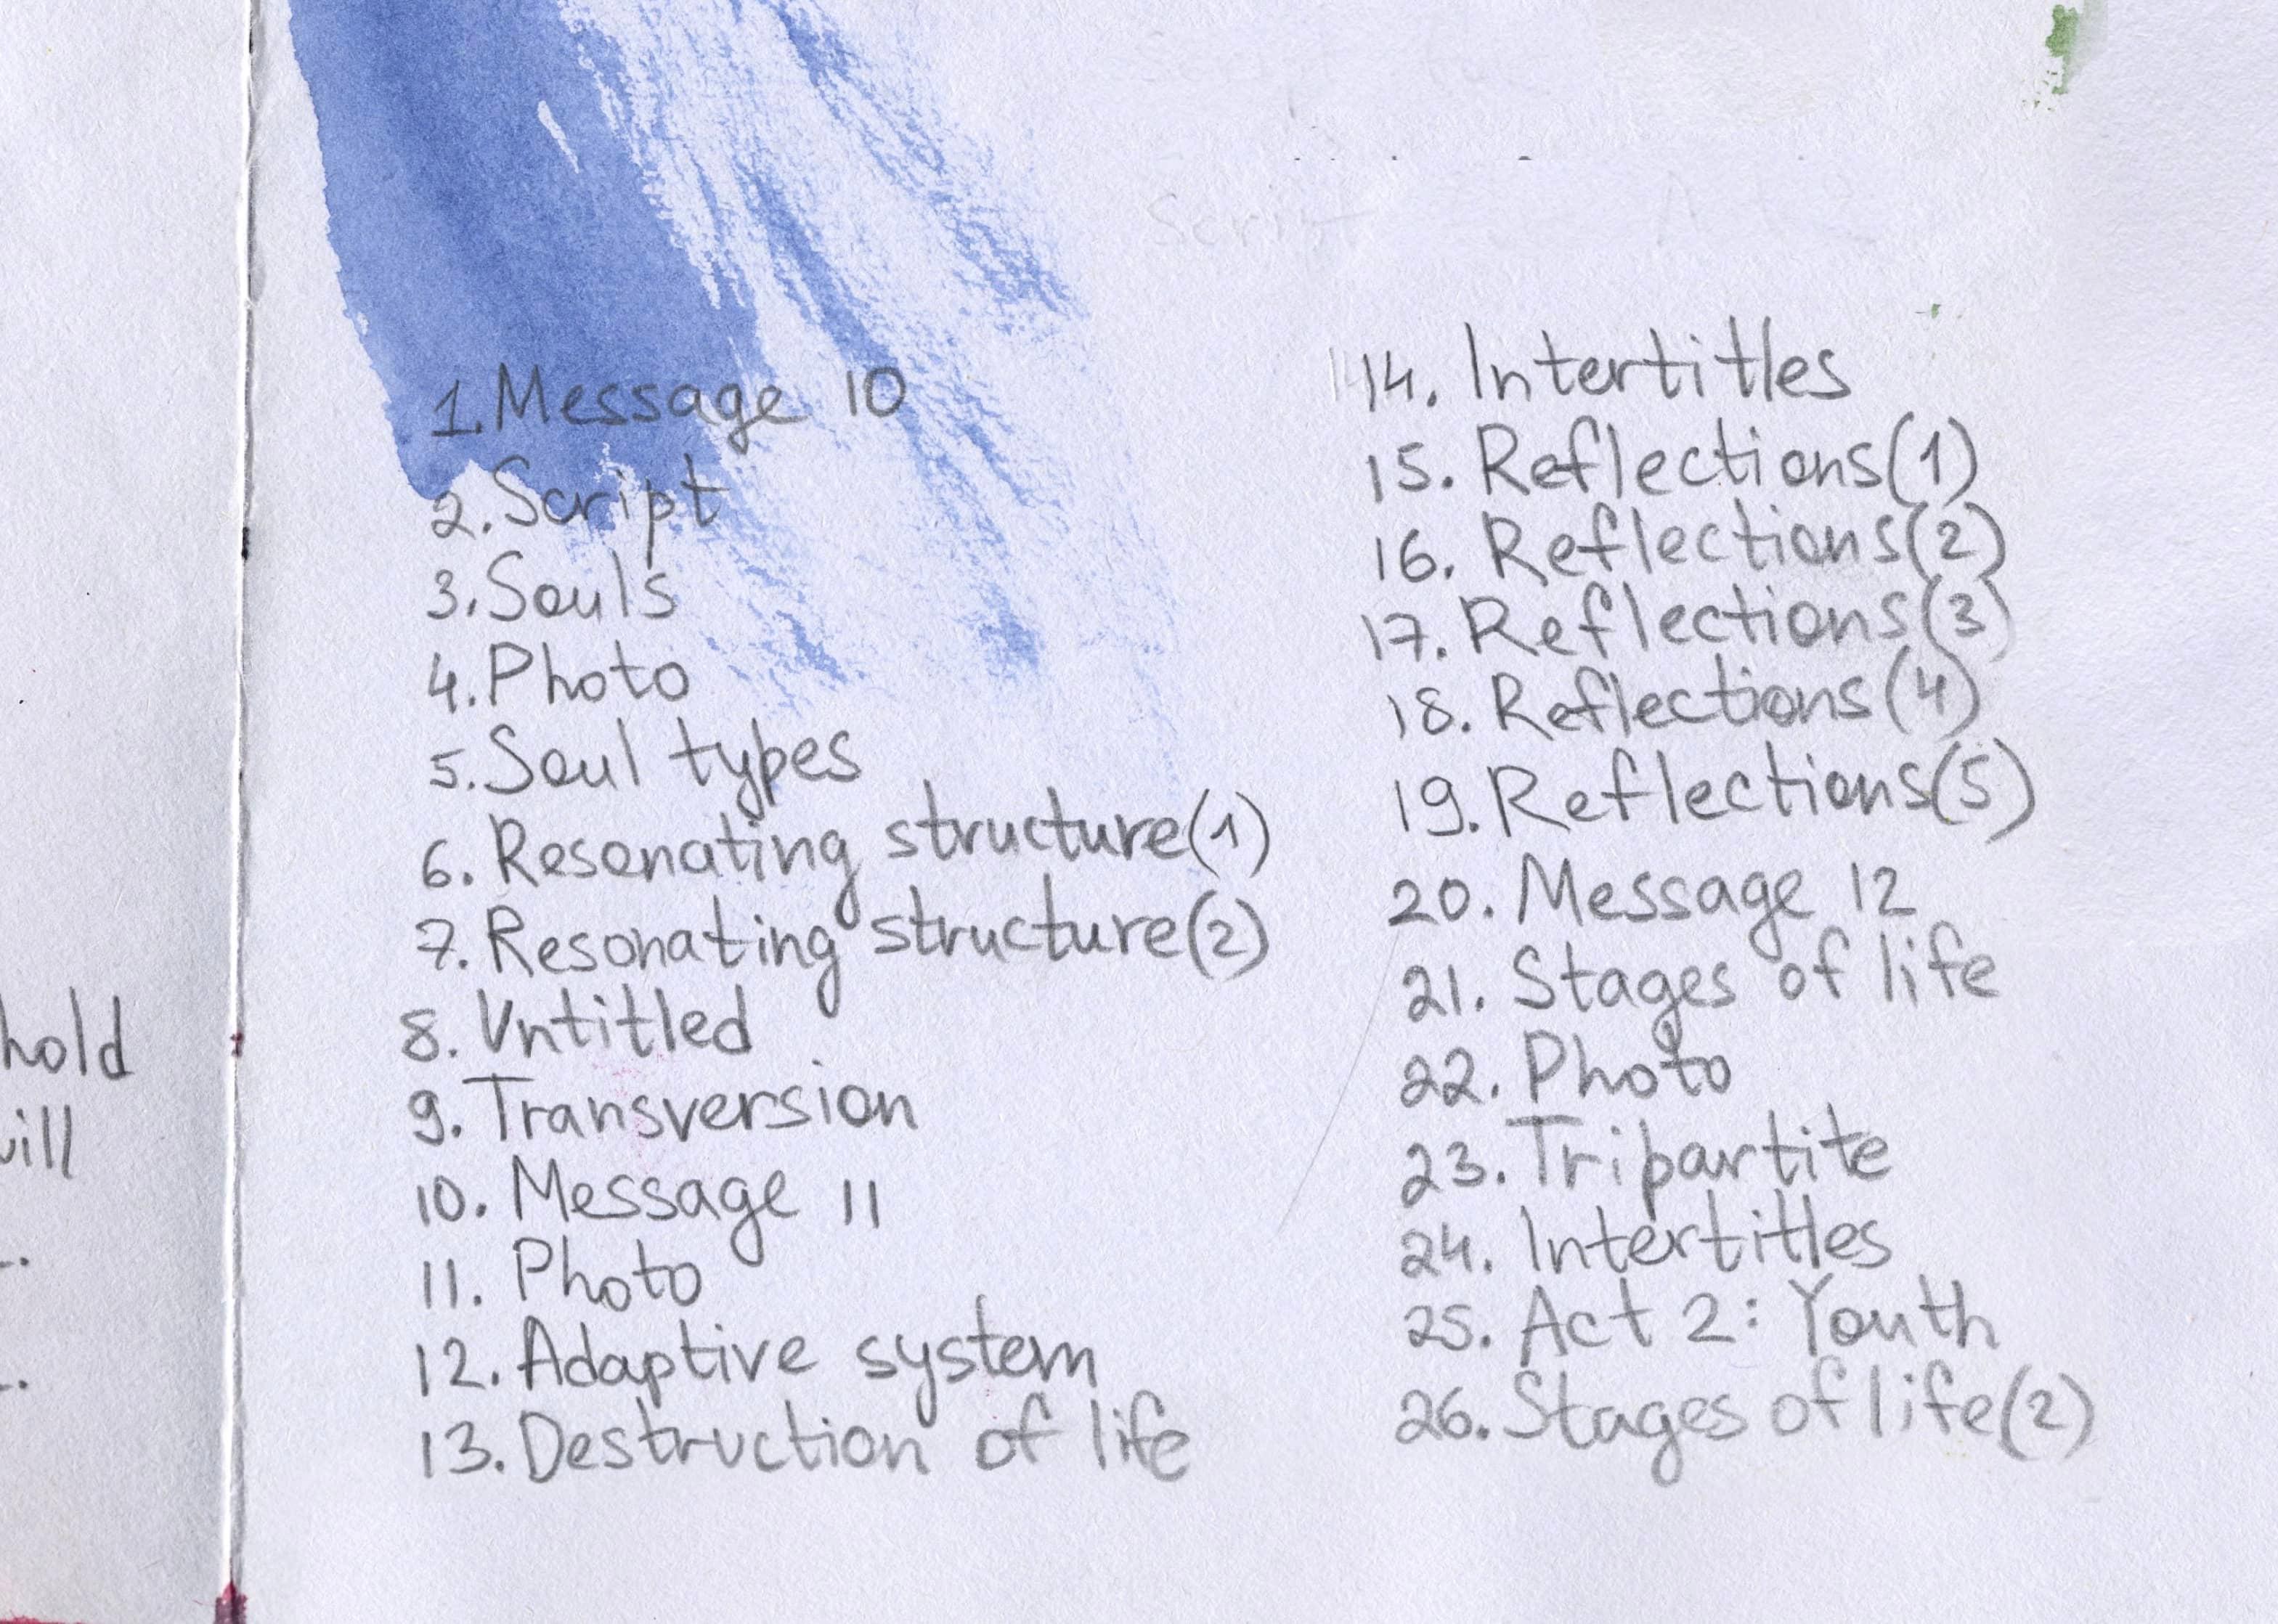 hold
will
1. Message 10
2. Script
3. Souls
4. Photo
5. Soul types
6. Resonating structure(1)
7. Resonating structure(2)
8. Untitled
9. Transversion
10. Message 11
11. Photo
12. Adaptive system
13. Destruction of life
Script
14. Intertitles
15. Reflections(1)
16. Reflections(2)
17. Reflections(3)
18. Reflections(4)
19. Reflections(5)
20. Message 12
21. Stages of life
22. Photo
23. Tripartite
24. Intertitles
25. Act 2: Youth
26. Stages of life(2)